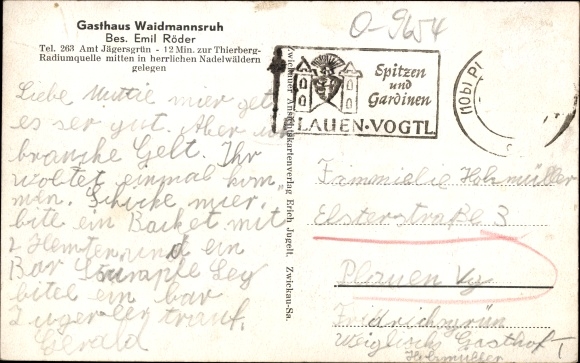 Gasthaus Waidmannsruh
Bes. Emil Röder
Tel. 263 Amt Jägersgrün - 12 Min. zur Thierberg-
Radiumquelle mitten in herrlichen Nadelwäldern
gelegen
O-9654
Spitzen
und
Gardinen
PLAUEN·VOGTL
Liebe Muttie mier get
es ser gut. Aber
brauche Gelt. Ihr
woltet einmal kom
men. Schicke mier
bite ein Backet mit
2 Hemten und ein
Bar Strümpfe Leg
bitel ein bar
Zuger trauf.
Gerald
Zwickauer Ansichtskartenverlag Erich Jugelt, Zwickau-Sa.
Fammielie Holzmüller
Elsterstraße 3
Plauen Vg
Fridrichsgrün
Weiglichs Gasthof
Holzmüller